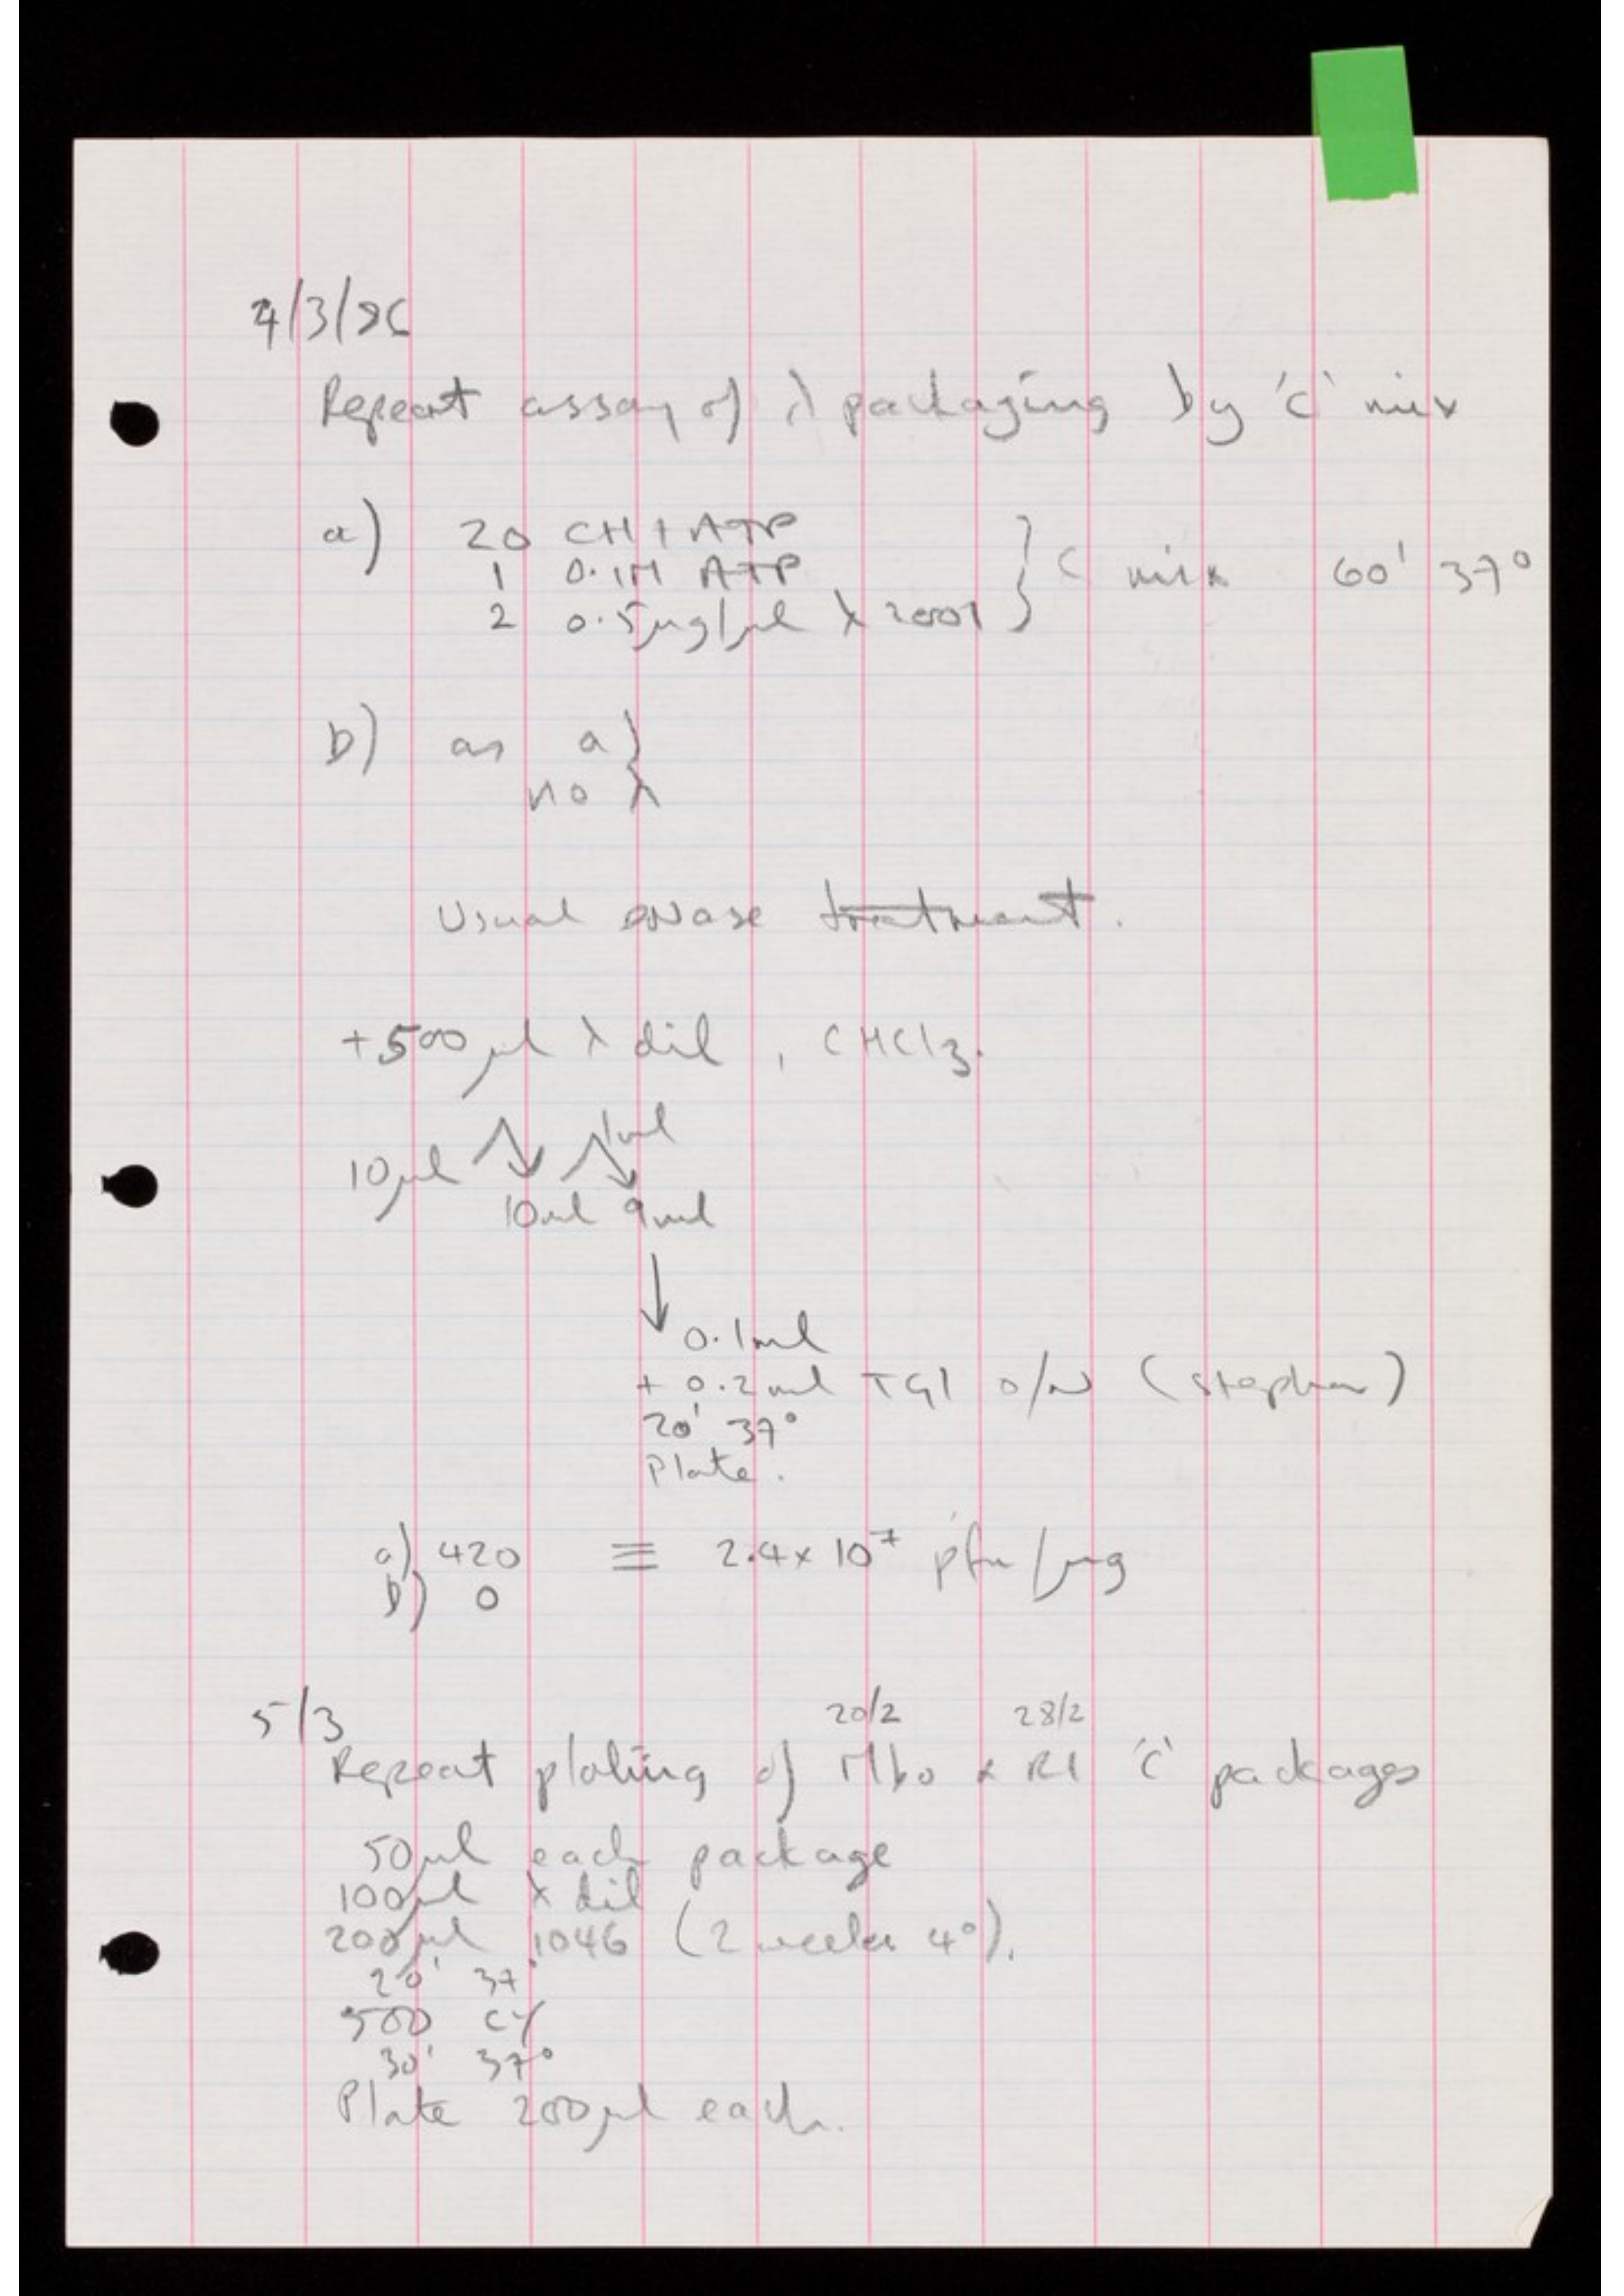 4/3/86
Repeat assay of λ packaging by 'C' mix
a) 20 CH + ATP
1 0.1M ATP
2 0.5μg/μl λ 2001 } C mix 60' 37°
b) as a)
no λ
Usual DNase treatment.
+500μl λ dil, CHCl3.
1ml
10μl
10ml 9ml
0.1ml
+ 0.2ml TG1 o/n (stephen)
20' 37°
Plate.
a) 420 ≡ 2.4 x 10⁷ pfu/μg
b) 0
5/3
20/2 28/2
Repeat plating of Mbo & R1 'C' packages
50μl each package
100μl λ dil
200μl 1046 (2 weeks 4°).
20' 37°
500 CY
30' 37°
Plate 200μl each.